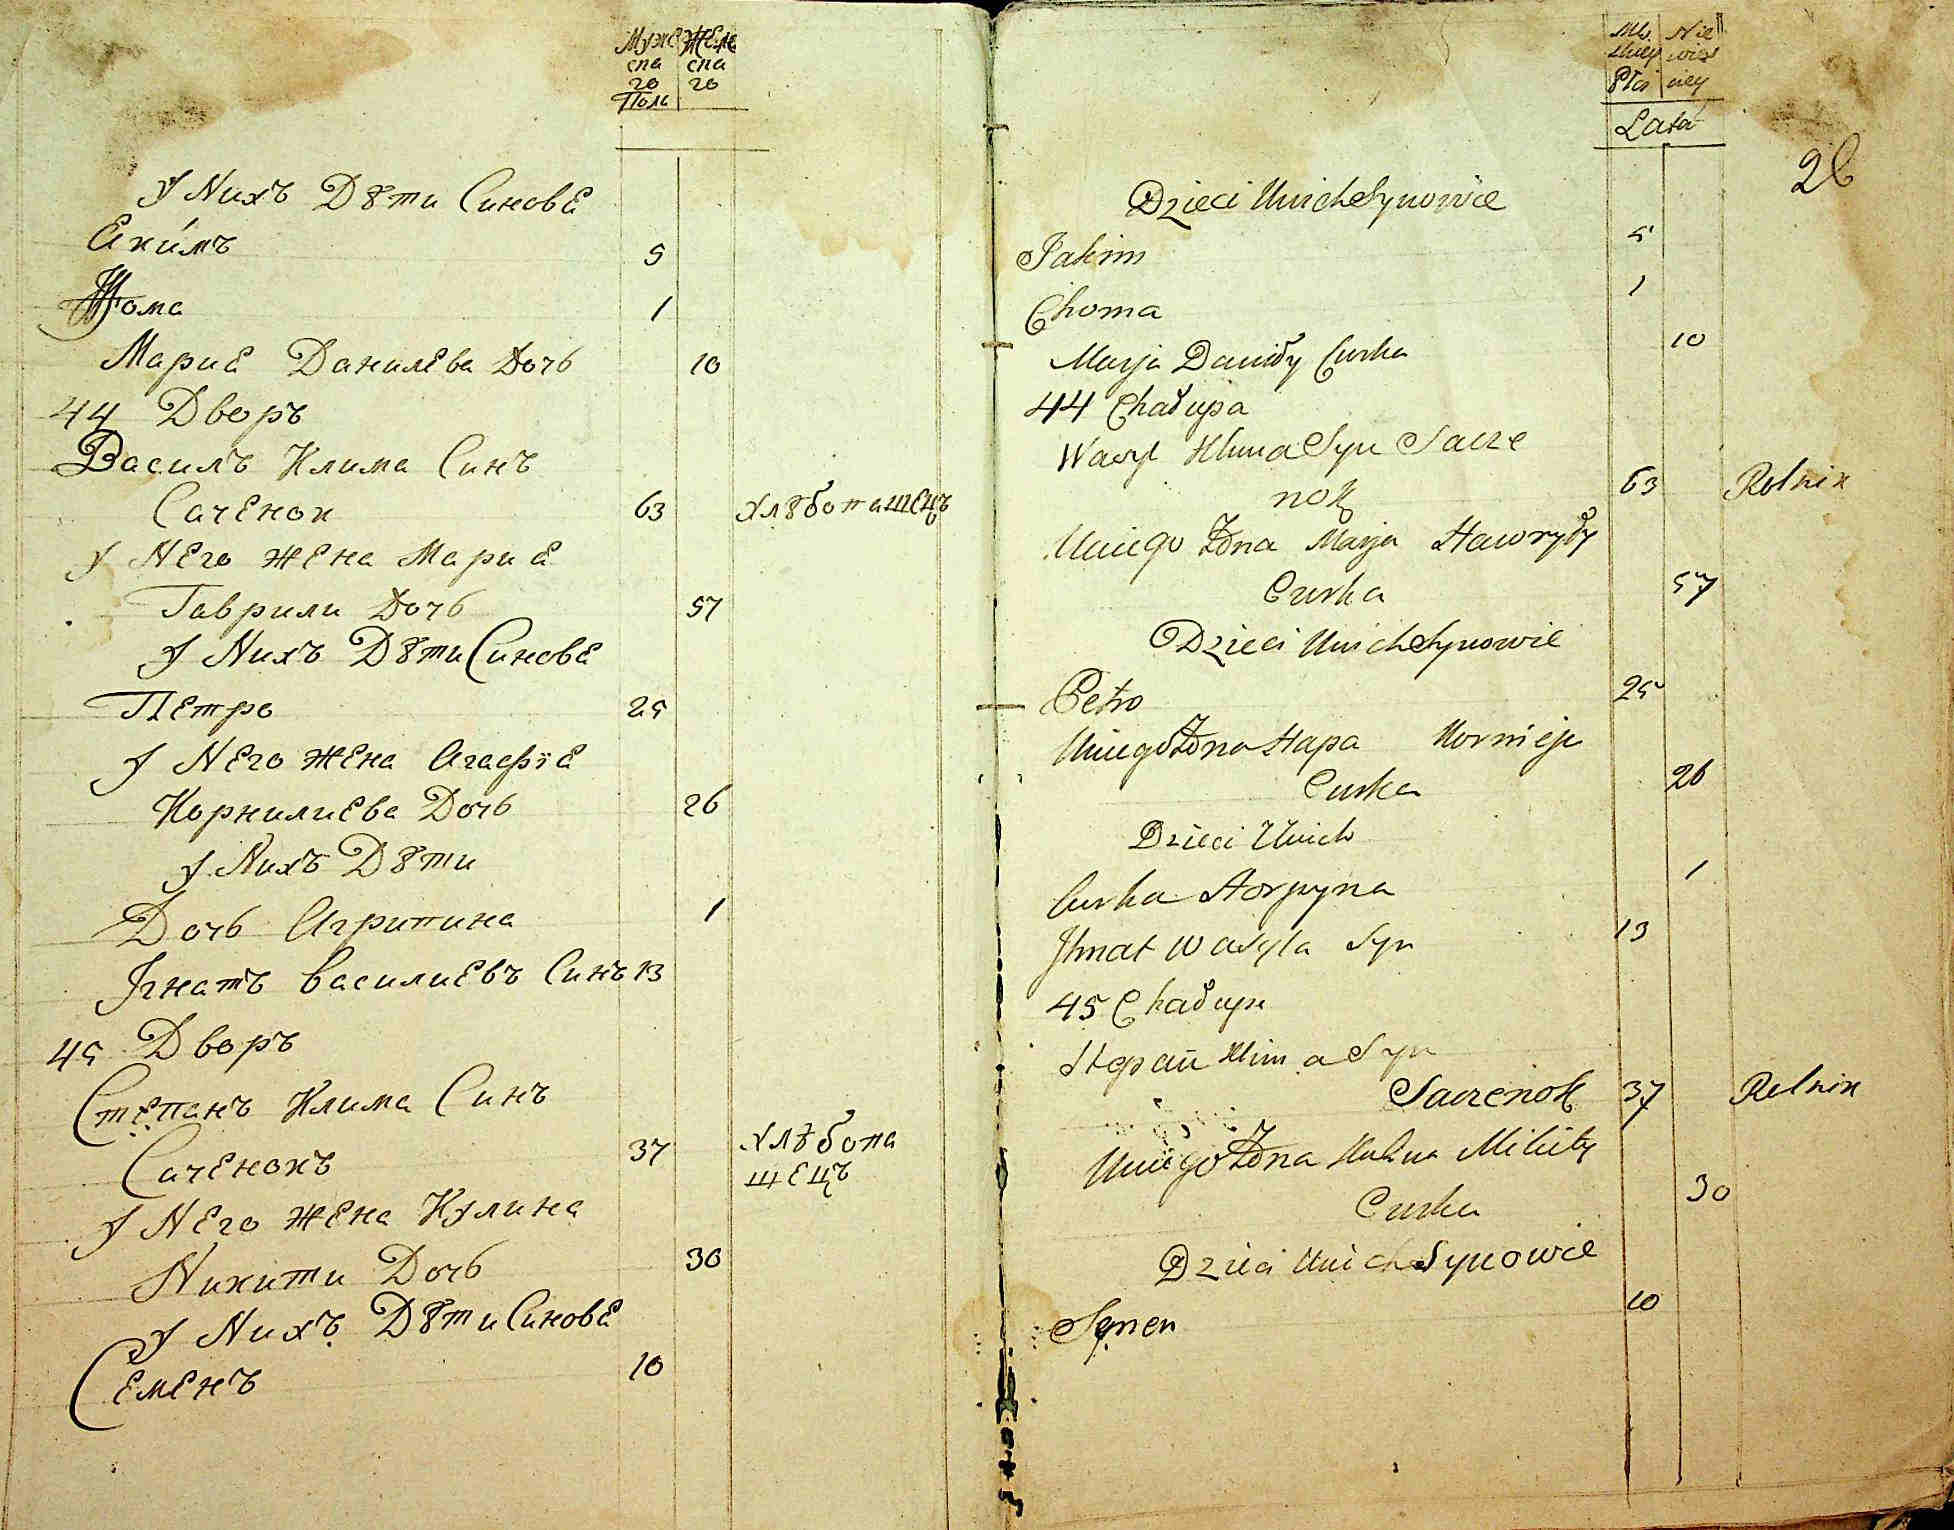 Муже Жен
ска ска
го го
Полъ
У Нихъ Дѣти Синовѣ
Екимъ 5
Хома 1
Мариѣ Данилева Дочь 10
44 Дворъ
Василъ Клима Синъ
Саченок 63 хлѣбопашецъ
У Него жена Мариѣ
Гаврили Дочь 57
У Нихъ Дѣти Синовѣ
Петро 25
У Него жена Агафїѣ
Корнилиева Дочь 26
У Нихъ Дѣти
Дочь Агрипина 1
Ігнатъ Василиевъ Синъ 13
45 Дворъ
Степанъ Клима Синъ
Саченокъ 37 хлѣбопа
щецъ
У Него жена Кулина
Никити Дочь 30
У Нихъ Дѣти Синовѣ
Семенъ 10
Płci
Lata
26
Dzieci Unich Synowie
Jakim 5
Choma 1
Marja Daniły Curka 10
44 Chałupa
Wasyl Klima Syn Sacze
nok 63 Rolnik
Uniego Żona Marja Hawryły
Curka 57
Dzieci Unich Synowie
Petro 25
Uniego Żona Hapa Korniej
Curka 26
Dzieci Unich
Curka Horpyna 1
Ihnat Wasyla Syn 13
45 Chałupa
Stepan Klima Syn
Saczenok 37 Rolnik
Uniego Żona Kulina Mikity
Curka 30
Dzieci Unich Synowie
Semen 10